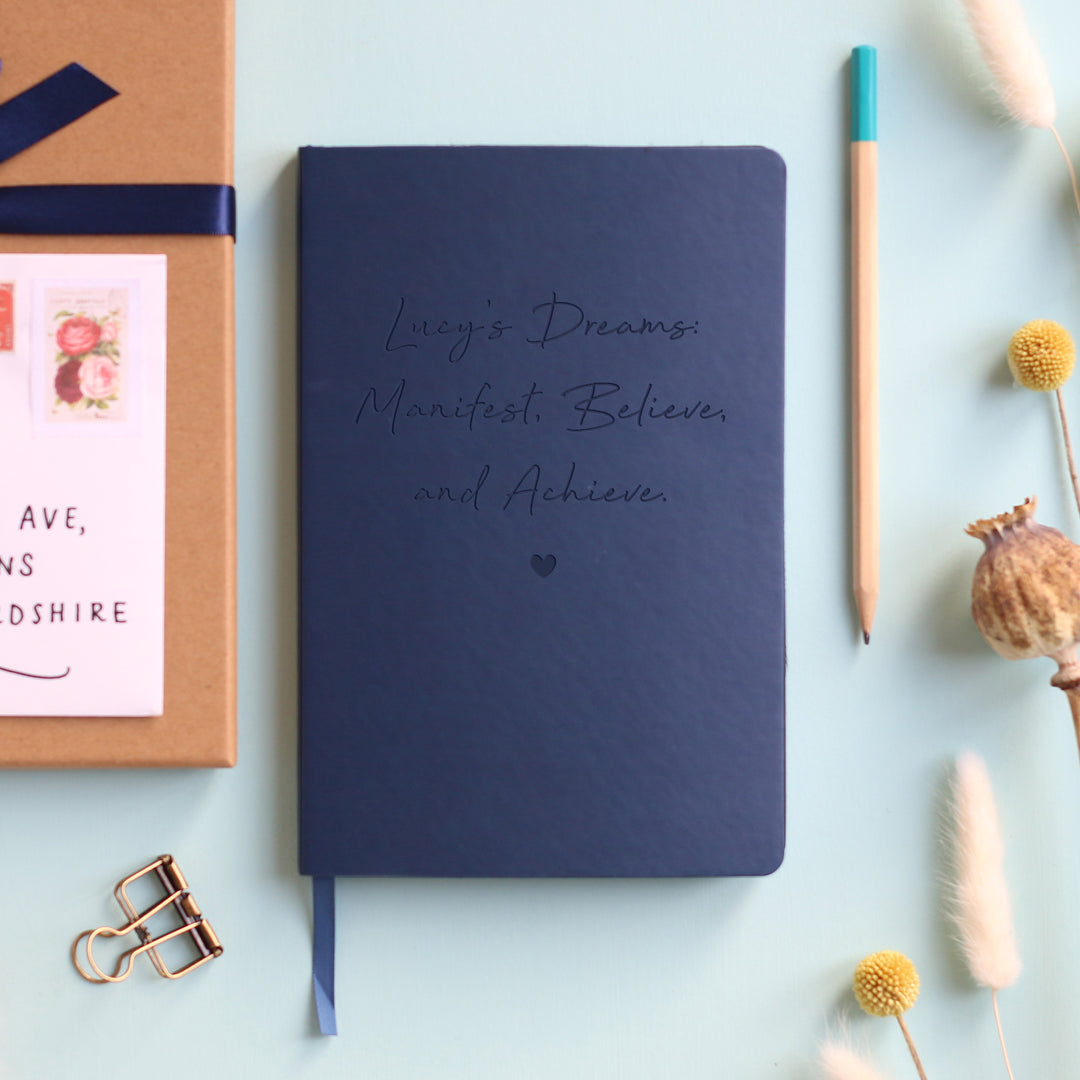 Lucy's Dreams:
Manifest, Believe,
and Achieve.
AVE,
NS
RDSHIRE